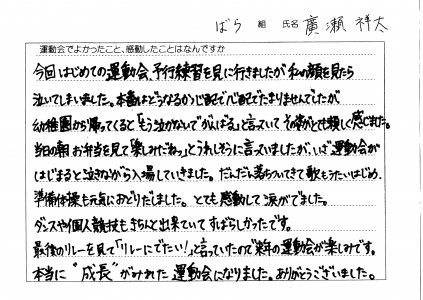 ばら 組 氏名 廣瀬 祥太
運動会でよかったこと、感動したことはなんですか
今回はじめての運動会、予行練習を見に行きましたが私の顔を見たら
泣いてしまいました。本番はどうなるか心配で心配でたまりませんでしたが
幼稚園から帰ってくると「もう泣かないでがんばる」と言っていてその姿がとても頼しく感じました。
当日の朝お弁当を見て「楽しみだねっ」とうれしそうに言っていましたが、いざ運動会が
はじまると泣きながら入場していきました。だんだん落ちついてきて歌もうたいはじめ、
準備体操も元気におどりだしました。とても感動して涙がでました。
ダンスや個人競技もきちんと出来ていてすばらしかったです。
最後のリレーを見て「リレーにでたい!」と言っていたので来年の運動会が楽しみです。
本当に"成長"がみれた運動会になりました。ありがとうございました。